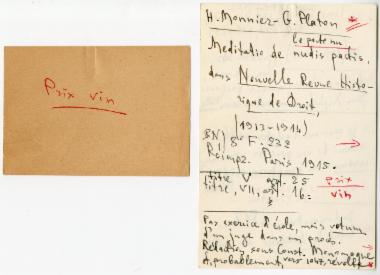 Prix vin
H. Monnier - G. Platon
le pacte nu
Meditatio de nudis pactis,
dans Nouvelle Revue Histo-
rique de Droit,
(1913-1914)
BN) 8° F. 232
Réimp. Paris, 1915.
titre V, art. 25 Prix
titre, VII, art. 16: vin
Pas exercice d'école, mais votum
d'un juge dans un procès.
Rédaction sous Const. Monomaque
et, probablement, vers 1047, révolte